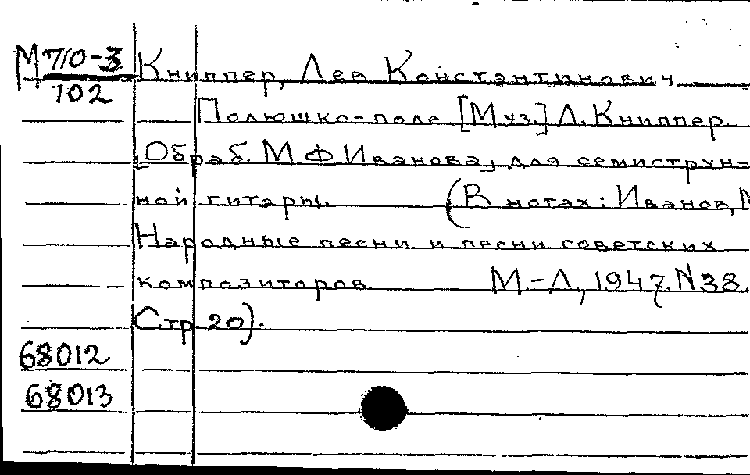 М 710-3 Книппер, Лев Константинович
102 Полюшко-поле [Муз.] Л. Книппер.
Обраб. М Ф Иванова, для семиструн-
ной гитары. (В нотах: Иванов, М
Народные песни и песни советских
композиторов. М.-Л., 1947. N 38.
Стр 20).
68012
68013